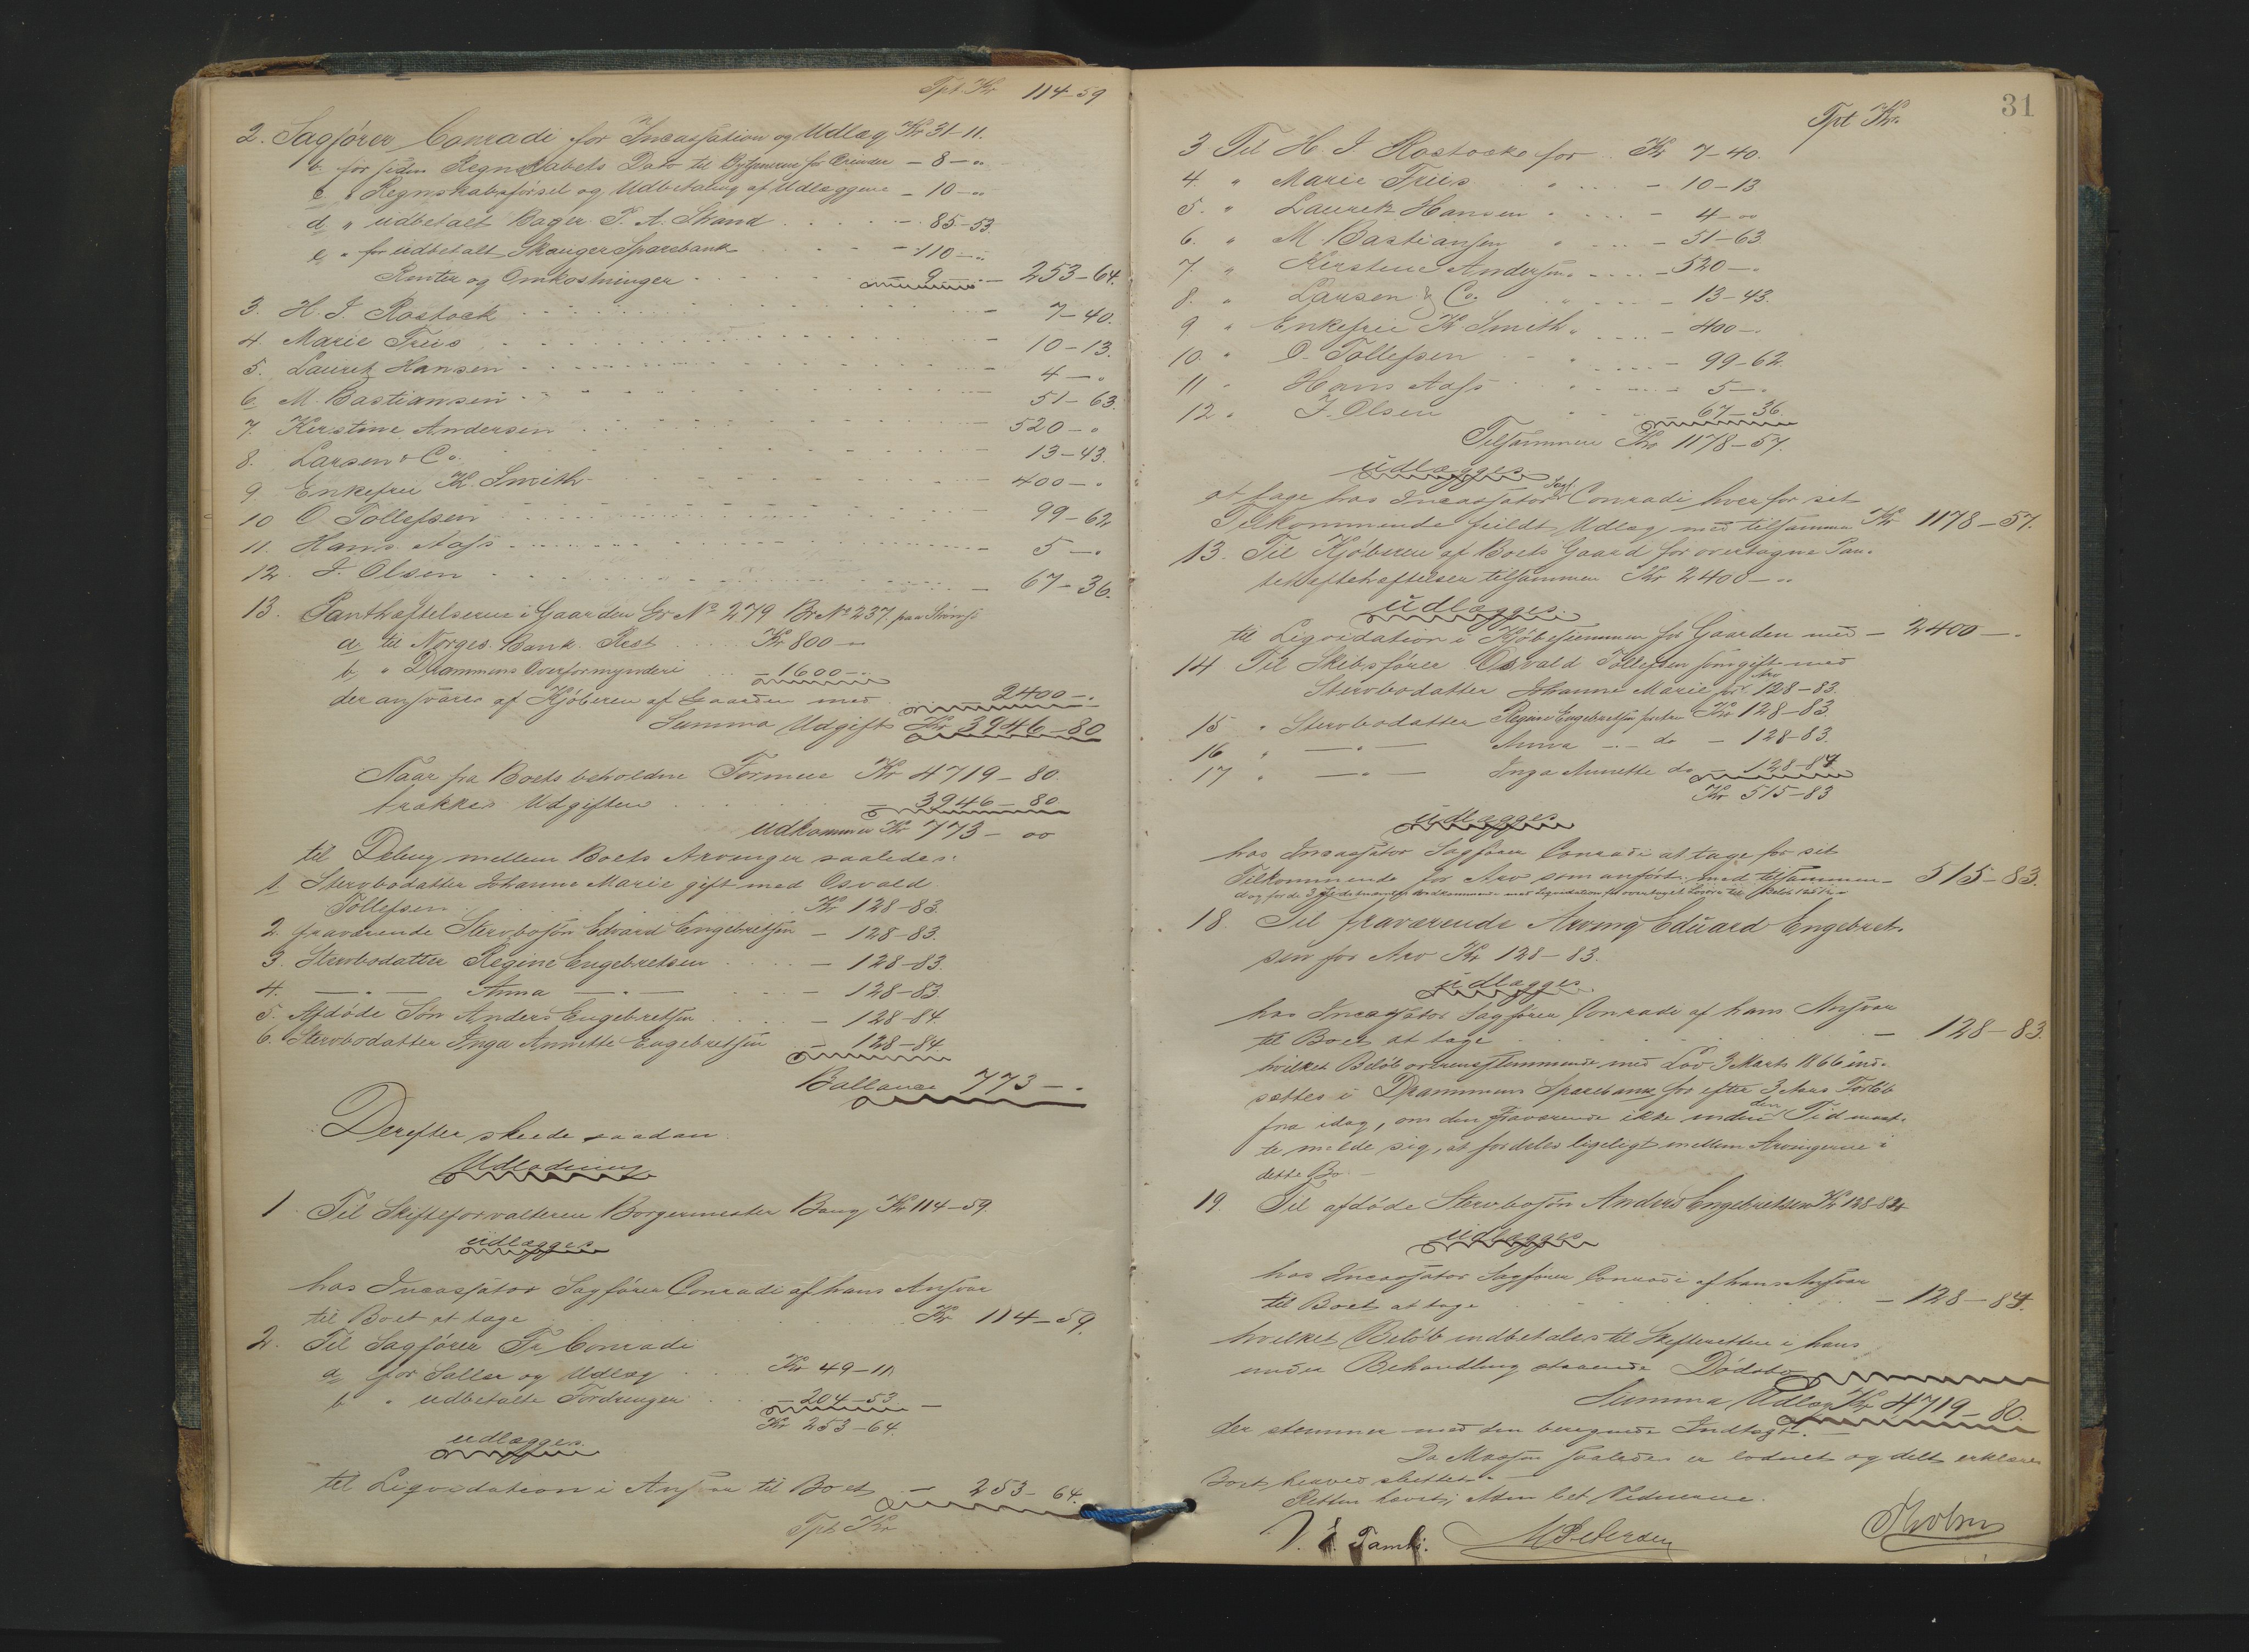 Tpt. Kr 114-59
2. Sagfører Conradi for Incassation og Udlæg Kr 31-11.
b. for siden Regnskabets Dato til for Ærender - 8-"
c " Regnskabsførsel og Udbetaling af Udlæggene - 10-"
d " udbetalt Bager P. A. Strand - 85-53
e " for udbetalt Skouger Sparebank - 110-"
Renter og Omkostninger - 9 - 253-64.
3. H. J. Rostock - 7-40.
4 Marie Friis - 10-13.
5. Lauritz Hansen - 4-"
6. M. Bastiansen - 51-63.
7. Kerstine Andersen - 520-"
8. Larsen & Co. - 13-43.
9. Enkefru K. Smith - 400-"
10 O. Tollefsen - 99-62
11. Hans Aass - 5-"
12. J. Olsen - 67-36.
13. Panthæftelserne i Gaarden Gr No 279 Br No 237. paa Strømsø
a, til Norges Bank. Rest Kr 800-
b, " Drammens Overformynderi - 1600-
der ansvares af Kjøberen af Gaarden med - 2400-.
Summa Udgift Kr 3946-80
Naar fra Boets beholdne Formue Kr 4719-80.
trækkes Udgiften - 3946-80
udkommer Kr 773-00
til Deling mellem Boets Arvinger saaledes:
1. Stervbodatter Johanne Marie gift med Osvald
Tollefsen Kr 128-83.
2. fraværende Stervbosøn Edvard Engebretsen - 128-83.
3. Stervbodatter Regine Engebretsen - 128-83.
4. -"- Anna -"- - 128-83
5. Afdøde Søn Anders Engebretsen - 128-84.
6. Stervbodatter Inga Annette Engebretsen - 128-84
Ballance 773-.
Derefter skeede saadan
Udlodning
1. Til Skifteforvalteren Borgermester Bang Kr 114-59.
udlægges
hos Incassator Sagfører Conradi af hans Ansvar
til Boet at tage Kr 114-59.
2. Til Sagfører Fr. Conradi
a, for Sallær og Udlæg Kr 49-11
b, " udbetalte Fordringer - 204-53
Kr 253-64.
udlægges
til Liqvidation i Ansvar til Boet - 253-64.
Tpt. Kr
31
Tpt Kr.
3 Til H. J. Rostocke for Kr 7-40.
4. " Marie Friis " - 10-13
5. " Lauritz Hansen " - 4-00
6. " M. Bastiansen " - 51-63.
7. " Kerstine Andersen " - 520-.
8. " Larsen & Co. " - 13-43.
9 " Enkefru K. Smith " - 400-.
10. " O. Tollefsen " - 99-62.
11 " Hans Aass " - 5-.
12 " J. Olsen " - 67-36.
Tilsammen Kr 1178-57.
udlægges
at tage hos Incassator Sagf. Conradi hver for sit
Tilkommende fuldt Udlæg med tilsammen Kr 1178-57.
13. Til Kjøberen af Boets Gaard for overtagne Pan-
tehæftelser tilsammen Kr 2400-"
udlægges.
til Liqvidation i Kjøbesummen for Gaarden med - 2400-.
14 Til Skibsfører Osvald Tollefsen som gift med
Stervbodatter Johanne Marie for Arv 128-83.
15 " Stervbodatter Regine Engebretsen Kr 128-83.
16 " -"- Anna -"- do - 128-83.
17 " -"- Inga Annette do - 128-84
Kr 515-83
udlægges
hos Incassator Sagfører Conradi at tage for sit
Tilkommende for Arv som anført med tilsammen - 515-83.
18. Til fraværende Arving Eduard Engebret-
sen for Arv Kr 128-83.
udlægges
hos Incassator Sagfører Conradi af hans Ansvar
til Boet at tage - 128-83.
hvilket Beløb overensstemmende med Lov 3 Marts 1866 ind-
sættes i Drammens Sparebank for efter 3 Aars Forløb
fra idag, om den Fraværende ikke inden den Tid maat-
te melde sig, at fordeles ligeligt mellem Arvingerne i
dette Bo.
19. Til afdøde Stervbosøn Anders Engebretsen Kr 128-84
udlægges
hos Incassator Sagfører Conradi af hans Ansvar
til Boet at tage - 128-84.
hvilket Beløb indbetales til Skifteretten i hans
under Behandling staaende Dødsbo
Summa Udlæg Kr 4719-80.
der stemmer med den beregnede Indtægt.
Da Massen saaledes er lodnet og delt erklæres
Boet herved sluttet.
Retten hævet;
M Pedersen